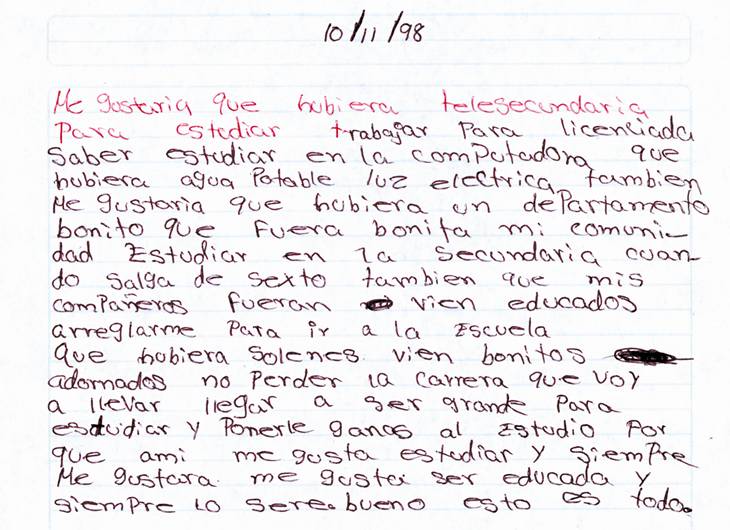 10/11/98
Me gustaria que hubiera telesecundaria
Para estudiar trabajar Para licenciada
Saber estudiar en la comPutadora que
hubiera agua Potable luz electrica tambien
Me gustaria que hubiera un dePartamento
bonito que fuera bonita mi comuni-
dad Estudiar en la secundaria cuan-
do salga de sexto tambien que mis
compañeros fueran vien educados
arreglarme Para ir a la Escuela
que hubiera Solenes vien bonitos
adornados no Perder la carrera que voy
a llevar llegar a ser grande Para
estuidiar y Ponerle ganas al Estudio Por
que ami me gusta estudiar y siemPre
Me gustara. me gusta ser educada y
siempre lo sere. bueno esto es todo.